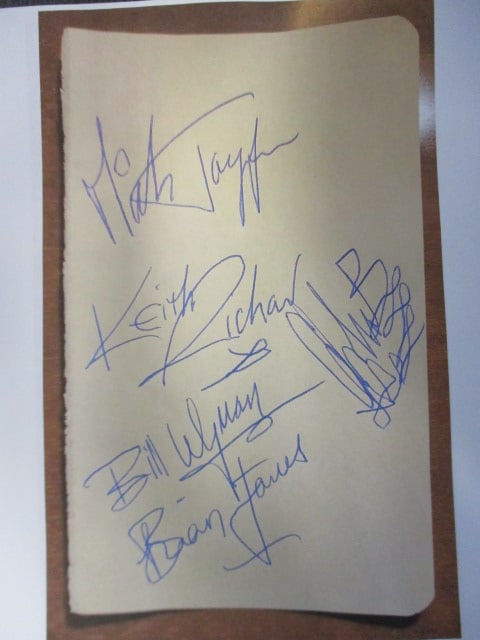 Mick Jagger
Keith Richard
Bill Wyman
Brian Jones